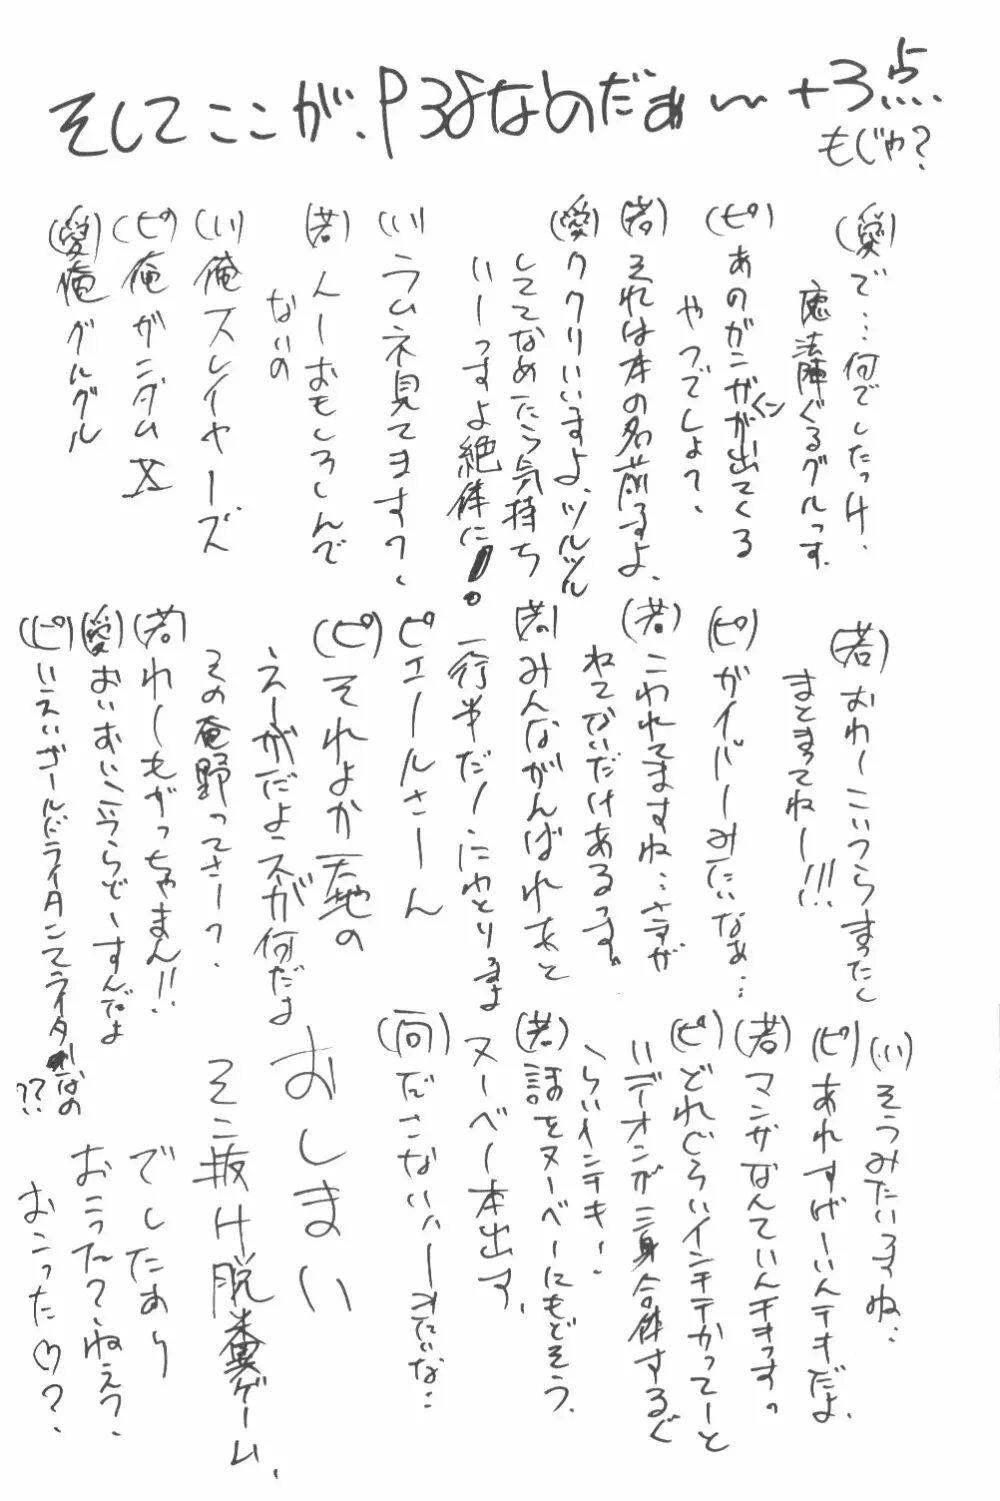 そしてここが、P38なのだぁ〜+3点
もじゃ?
(愛)で…何でしたっけ、
魔法陣ぐるグルっす。
(ピ)あのガンガンが出てくる
やつでしょ?、
(若)それは本の名前るよ、
(愛)ククリいいますよ、ツルツル
しててなめたら気持ち
いーっすよ絶体に!。
(い)ラムネ見てます?、
(若)人ーおもしろしんで
ないの
(い)俺スレイヤーズ
(ピ)俺ガンダムX
(愛)俺グルグル
(若)おわーこいつらまったく
まとまってねー!!!
(ピ)ガイバーみたいなぁ…
(若)こわれてますね…さすが
ねてないだけあるっす。
(若)みんながんばれあと
一行半だ!にわとりるよ
ピエールさーん
(ピ)それよか天地の
えーがだよスが何だよ
その庵野ってさー?、
(若)わーもがっちゃまん!!
(愛)おいおいこいつらどーすんだよ
(ピ)いえいゴールドライタンてライターなの
??
(い)そうみたいるすね…
(ピ)あれすげーいんテキだよ、
(若)マンガなんていんチキっす。
(ピ)どれぐらいインチテかってーと
いデオンが三身合体するぐ
らいインチキ!
(若)話をヌーベーにもどそう、
ヌーベー本出す、
(向)ださないハーきたいな…
おしまい
そこ抜け脱糞ゲーム、
でしたあり
おこった?、ねえ?、
おこった♡?、